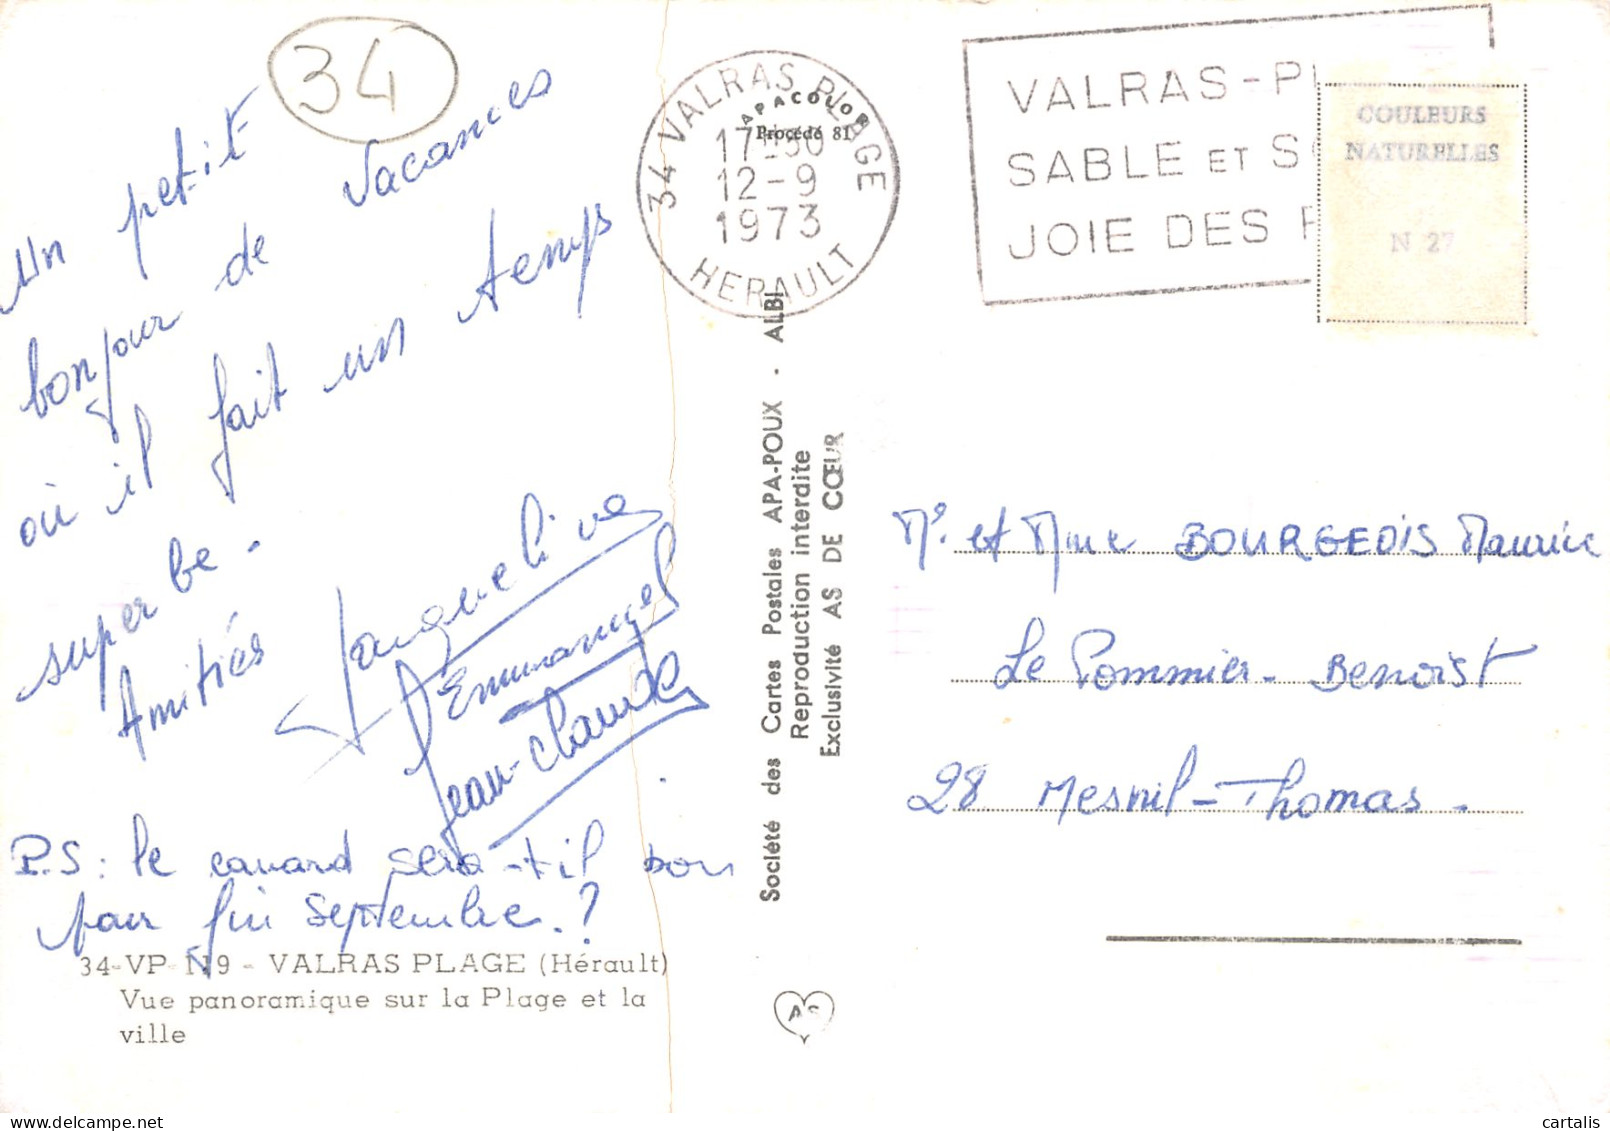 34
Un petit
bonjour de vacances
où il fait un temps
superbe -
Amitiés Jacqueline
Emmanuel
Jean-Claude
P.S : le canard sera-t-il bon
pour fin septembre ?
34-VP N 9 - VALRAS PLAGE (Hérault)
Vue panoramique sur la Plage et la
ville
34 VALRAS PLAGE
17H30
12-9
1973
HERAULT
APACOLOR
Procédé 81
VALRAS-PL
SABLE ET SO
JOIE DES
COULEURS
NATURELLES
N 27
Société des Cartes Postales APA-POUX - ALBI
Reproduction interdite
Exclusivité AS DE CŒUR
AS
Mr et Mme BOURGEOIS Maurice
Le Pommier-Benoist
28 Mesnil-Thomas -
cartalis